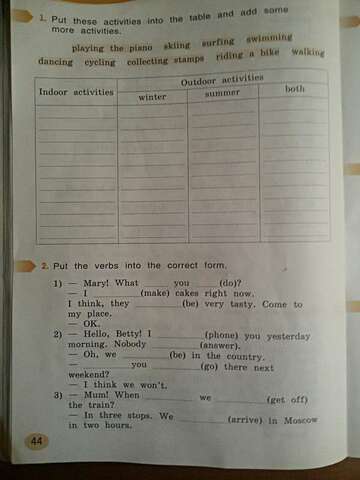 1. Put these activities into the table and add some
more activities.
playing the piano skiing surfing swimming
dancing cycling collecting stamps riding a bike walking
Indoor activities Outdoor activities
winter summer both
2. Put the verbs into the correct form.
1) — Mary! What ______ you ______ (do)?
— I ______ (make) cakes right now.
I think, they ______ (be) very tasty. Come to
my place.
— OK.
2) — Hello, Betty! I ______ (phone) you yesterday
morning. Nobody ______ (answer).
— Oh, we ______ (be) in the country.
— ______ you ______ (go) there next
weekend?
— I think we won't.
3) — Mum! When ______ we ______ (get off)
the train?
— In three stops. We ______ (arrive) in Moscow
in two hours.
44